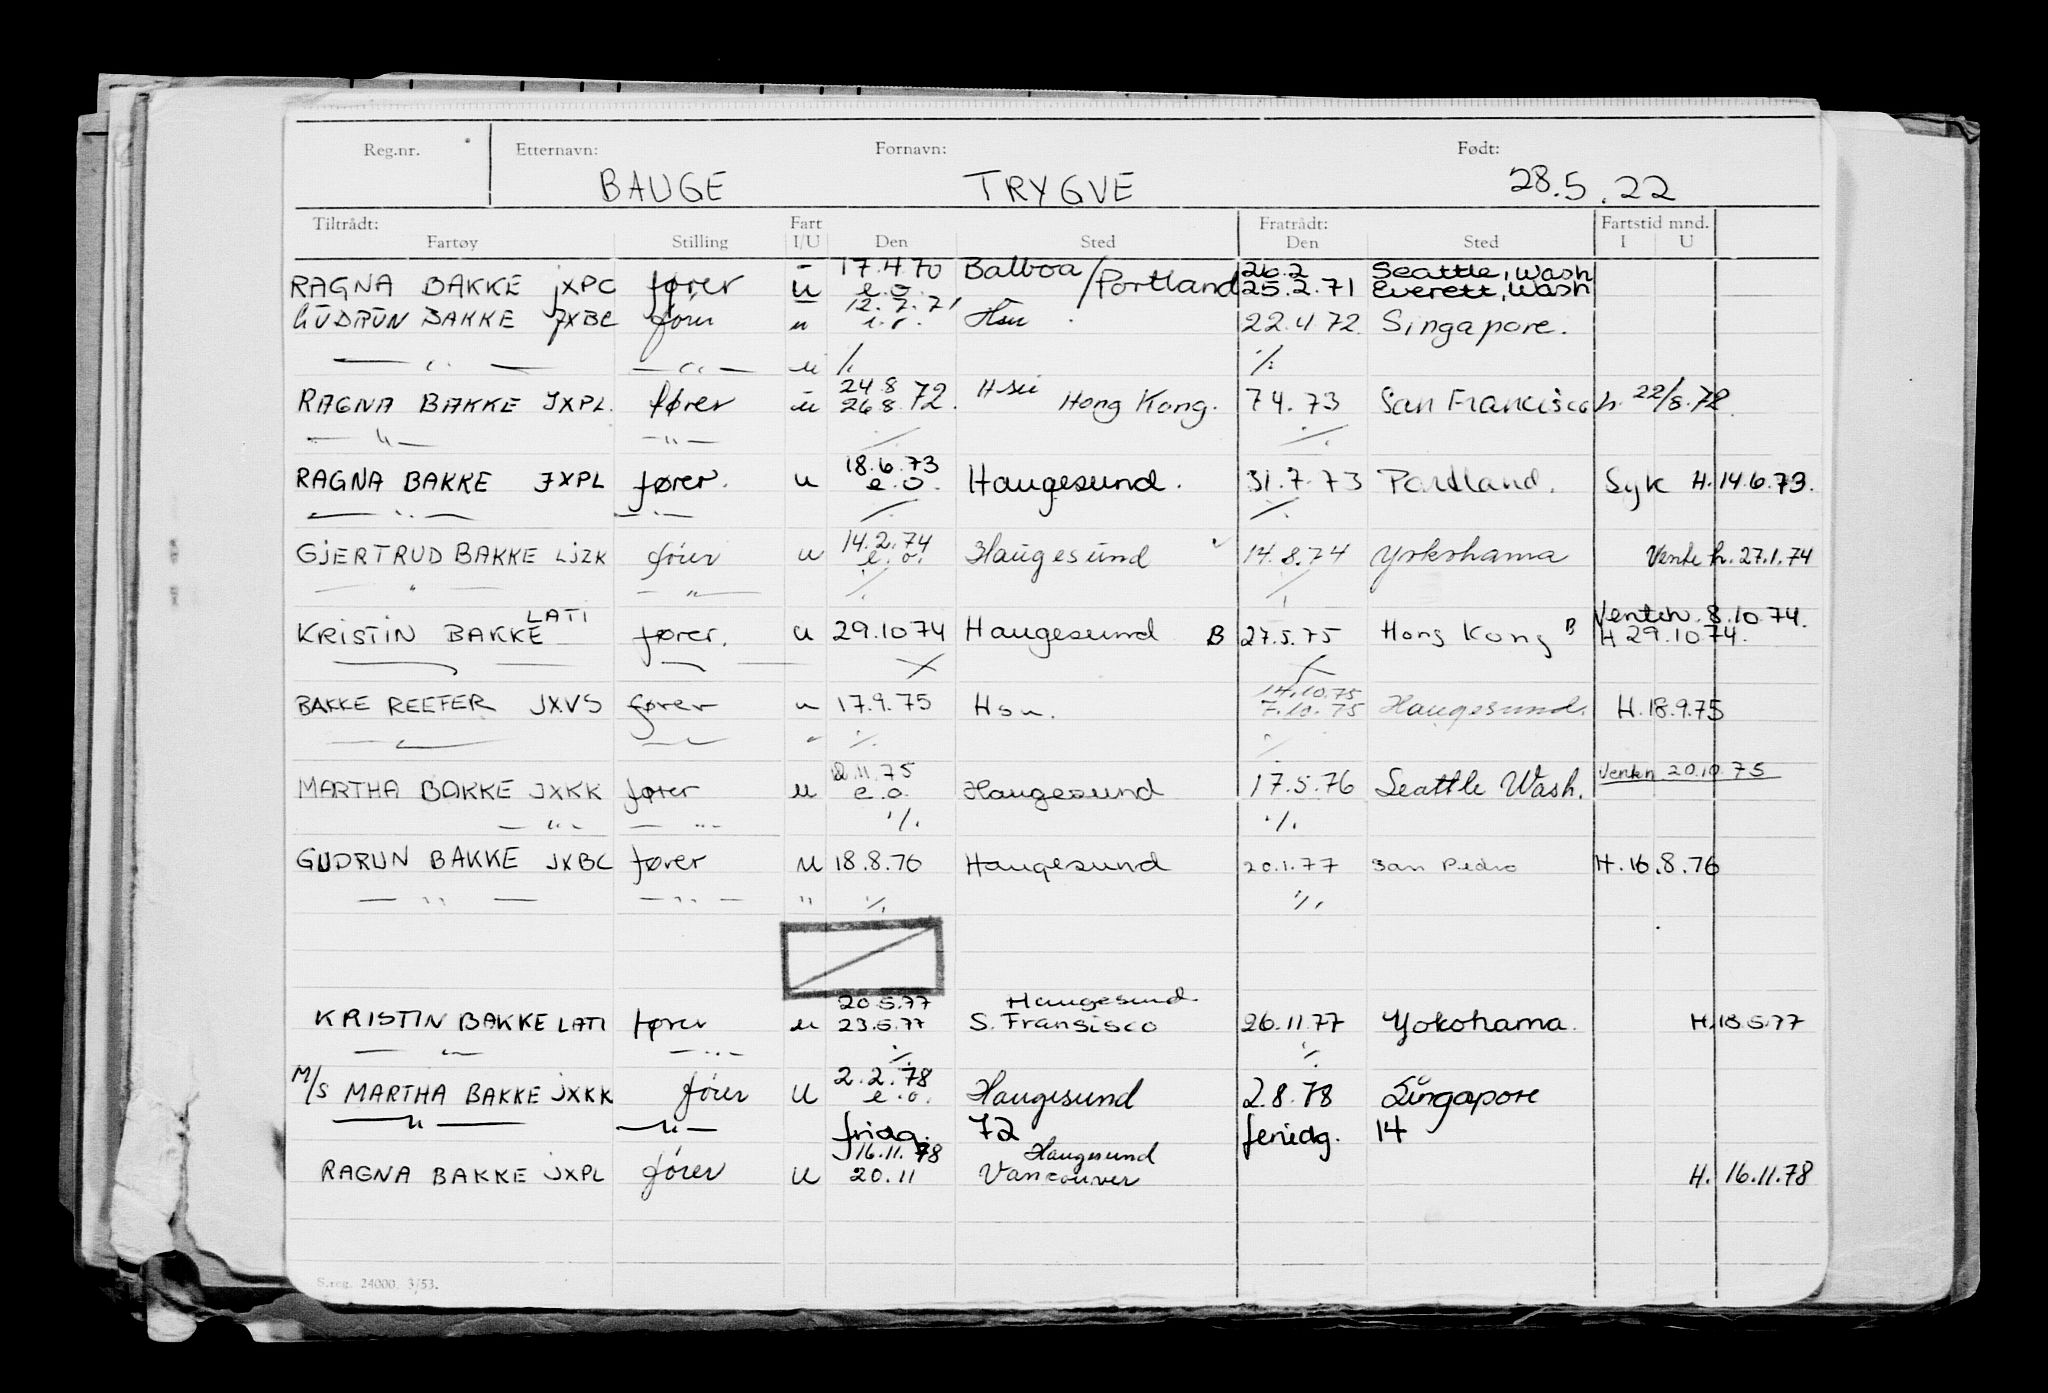 Reg.nr. Etternavn: Fornavn: Født:
BAUGE TRYGVE 28.5.22
Tiltrådt: Fart Fratrådt: Fartstid mnd.
Fartøy Stilling I/U Den Sted Den Sted I U
17.4.70 Balboa 26.2 Seattle, Wash
RAGNA BAKKE JXPC fører u e.o. /Portland 25.2.71 Everett, Wash
12.7.71
GUDRUN BAKKE JXBC fører u Hsu 22.4.72. Singapore.
— " — — " — u /. ./.
24.8 Hsu
RAGNA BAKKE JXPL. fører u 26.8.72. Hong Kong. 7 4.73 San Francisco h. 22/8.72.
— " — — " — ./. ./.
18.6.73
RAGNA BAKKE JXPL fører. u e.o. Haugesund. 31.7.73 Portland. Syk H.14.6.73.
— " — — " — ./. ./.
14.2.74
GJERTRUD BAKKE LJZK fører u e.o. Haugesund 14.8.74 Yokohama Vente h.27.1.74
" — " — ./. ./.
LATI Venteh. 8.10.74.
KRISTIN BAKKE fører. u 29.10 74 Haugesund B 27.5.75 Hong Kong B H 29.10 74.
14.10.75
BAKKE REEFER JXVS fører u 17.9.75 Hsu. 7.10.75 Haugesund. H.18.9.75
" ./. ./.
2.11.75 Venteh 20.10.75
MARTHA BAKKE JXKK fører u e.o. Haugesund 17.5.76 Seattle Wash.
— " — — " — ./. ./.
GUDRUN BAKKE JXBC fører u 18.8.76 Haugesund 20.1.77 San Pedro H.16.8.76
— " — — " — " ./. ./.
20.5.77 Haugesund
KRISTIN BAKKE LATI fører u 23.5.77 S. Fransisco 26.11.77 Yokohama. H.18.5.77
— " — — " — ./. ./.
2.2.78
M/S MARTHA BAKKE JXKK fører U e.o. Haugesund 2.8.78 Singapore
— " — — " — fridg. 72 feriedg. 14
16.11.78 Haugesund
RAGNA BAKKE JXPL fører U 20.11 Vancouver H. 16.11.78
S.reg. 24000. 3/53.